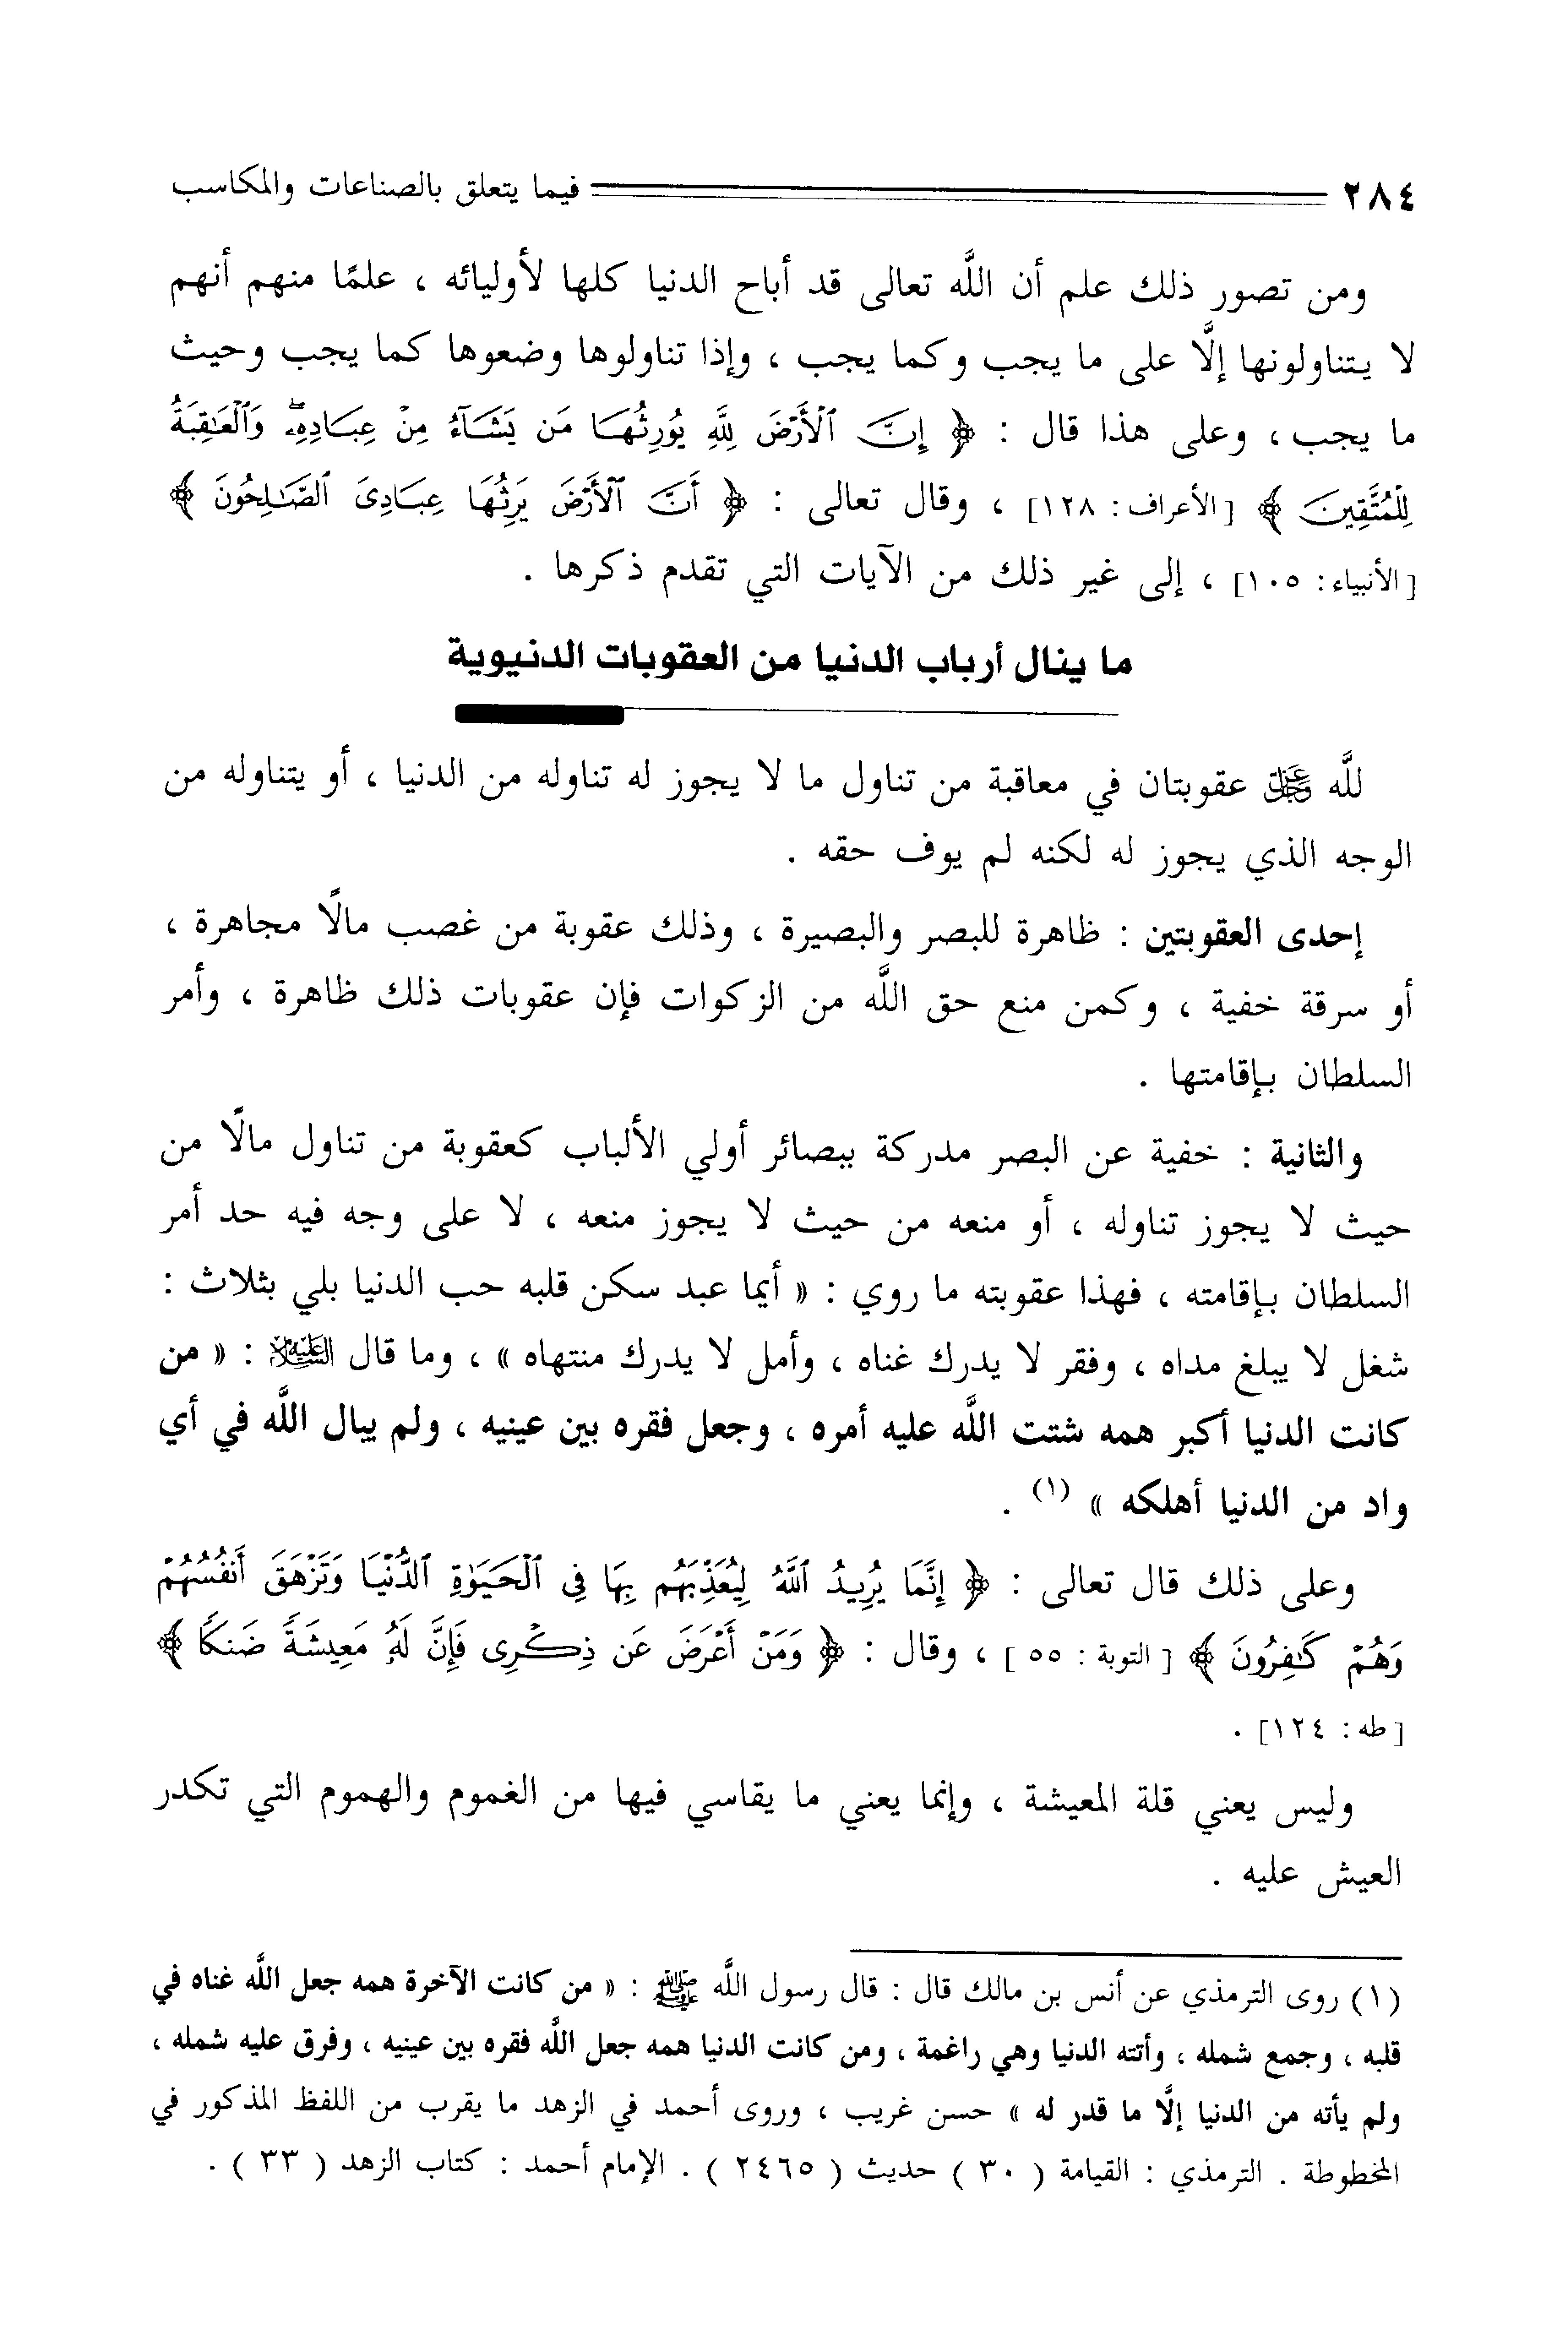 ٢٨٤ فيما يتعلق بالصناعات والمكاسب
ومن تصور ذلك علم أن اللَّه تعالى قد أباح الدنيا كلها لأوليائه ، علمًا منهم أنهم
لا يتناولونها إلَّا على ما يجب وكما يجب ، وإذا تناولوها وضعوها كما يجب وحيث
ما يجب ، وعلى هذا قال : ﴿ إِنَّ ٱلْأَرْضَ لِلَّهِ يُورِثُهَا مَن يَشَآءُ مِنْ عِبَادِهِۦۖ وَٱلْعَٰقِبَةُ
لِلْمُتَّقِينَ ﴾ [الأعراف: ١٢٨] ، وقال تعالى : ﴿ أَنَّ ٱلْأَرْضَ يَرِثُهَا عِبَادِىَ ٱلصَّٰلِحُونَ ﴾
[الأنبياء: ١٠٥] ، إلى غير ذلك من الآيات التي تقدم ذكرها .
ما ينال أرباب الدنيا من العقوبات الدنيوية
للَّه ﷿ عقوبتان في معاقبة من تناول ما لا يجوز له تناوله من الدنيا ، أو يتناوله من
الوجه الذي يجوز له لكنه لم يوف حقه .
إحدى العقوبتين : ظاهرة للبصر والبصيرة ، وذلك عقوبة من غصب مالًا مجاهرة ،
أو سرقة خفية ، وكمن منع حق اللَّه من الزكوات فإن عقوبات ذلك ظاهرة ، وأمر
السلطان بإقامتها .
والثانية : خفية عن البصر مدركة ببصائر أولي الألباب كعقوبة من تناول مالًا من
حيث لا يجوز تناوله ، أو منعه من حيث لا يجوز منعه ، لا على وجه فيه حد أمر
السلطان بإقامته ، فهذا عقوبته ما روي : « أيما عبد سكن قلبه حب الدنيا بلي بثلاث :
شغل لا يبلغ مداه ، وفقر لا يدرك غناه ، وأمل لا يدرك منتهاه » ، وما قال عليه السلام : « من
كانت الدنيا أكبر همه شتت اللَّه عليه أمره ، وجعل فقره بين عينيه ، ولم يبال اللَّه في أي
واد من الدنيا أهلكه » (١) .
وعلى ذلك قال تعالى : ﴿ إِنَّمَا يُرِيدُ ٱللَّهُ لِيُعَذِّبَهُم بِهَا فِى ٱلْحَيَوٰةِ ٱلدُّنْيَا وَتَزْهَقَ أَنفُسُهُمْ
وَهُمْ كَٰفِرُونَ ﴾ [ التوبة : ٥٥ ] ، وقال : ﴿ وَمَنْ أَعْرَضَ عَن ذِكْرِى فَإِنَّ لَهُۥ مَعِيشَةً ضَنكًا ﴾
[طه: ١٢٤] .
وليس يعني قلة المعيشة ، وإنما يعني ما يقاسي فيها من الغموم والهموم التي تكدر
العيش عليه .
(١) روى الترمذي عن أنس بن مالك قال : قال رسول اللَّه ﷺ : « من كانت الآخرة همه جعل اللَّه غناه في
قلبه ، وجمع شمله ، وأتته الدنيا وهي راغمة ، ومن كانت الدنيا همه جعل اللَّه فقره بين عينيه ، وفرق عليه شمله ،
ولم يأته من الدنيا إلَّا ما قدر له » حسن غريب ، وروى أحمد في الزهد ما يقرب من اللفظ المذكور في
المخطوطة . الترمذي : القيامة ( ٣٠ ) حديث ( ٢٤٦٥ ) . الإمام أحمد : كتاب الزهد ( ٣٣ ) .